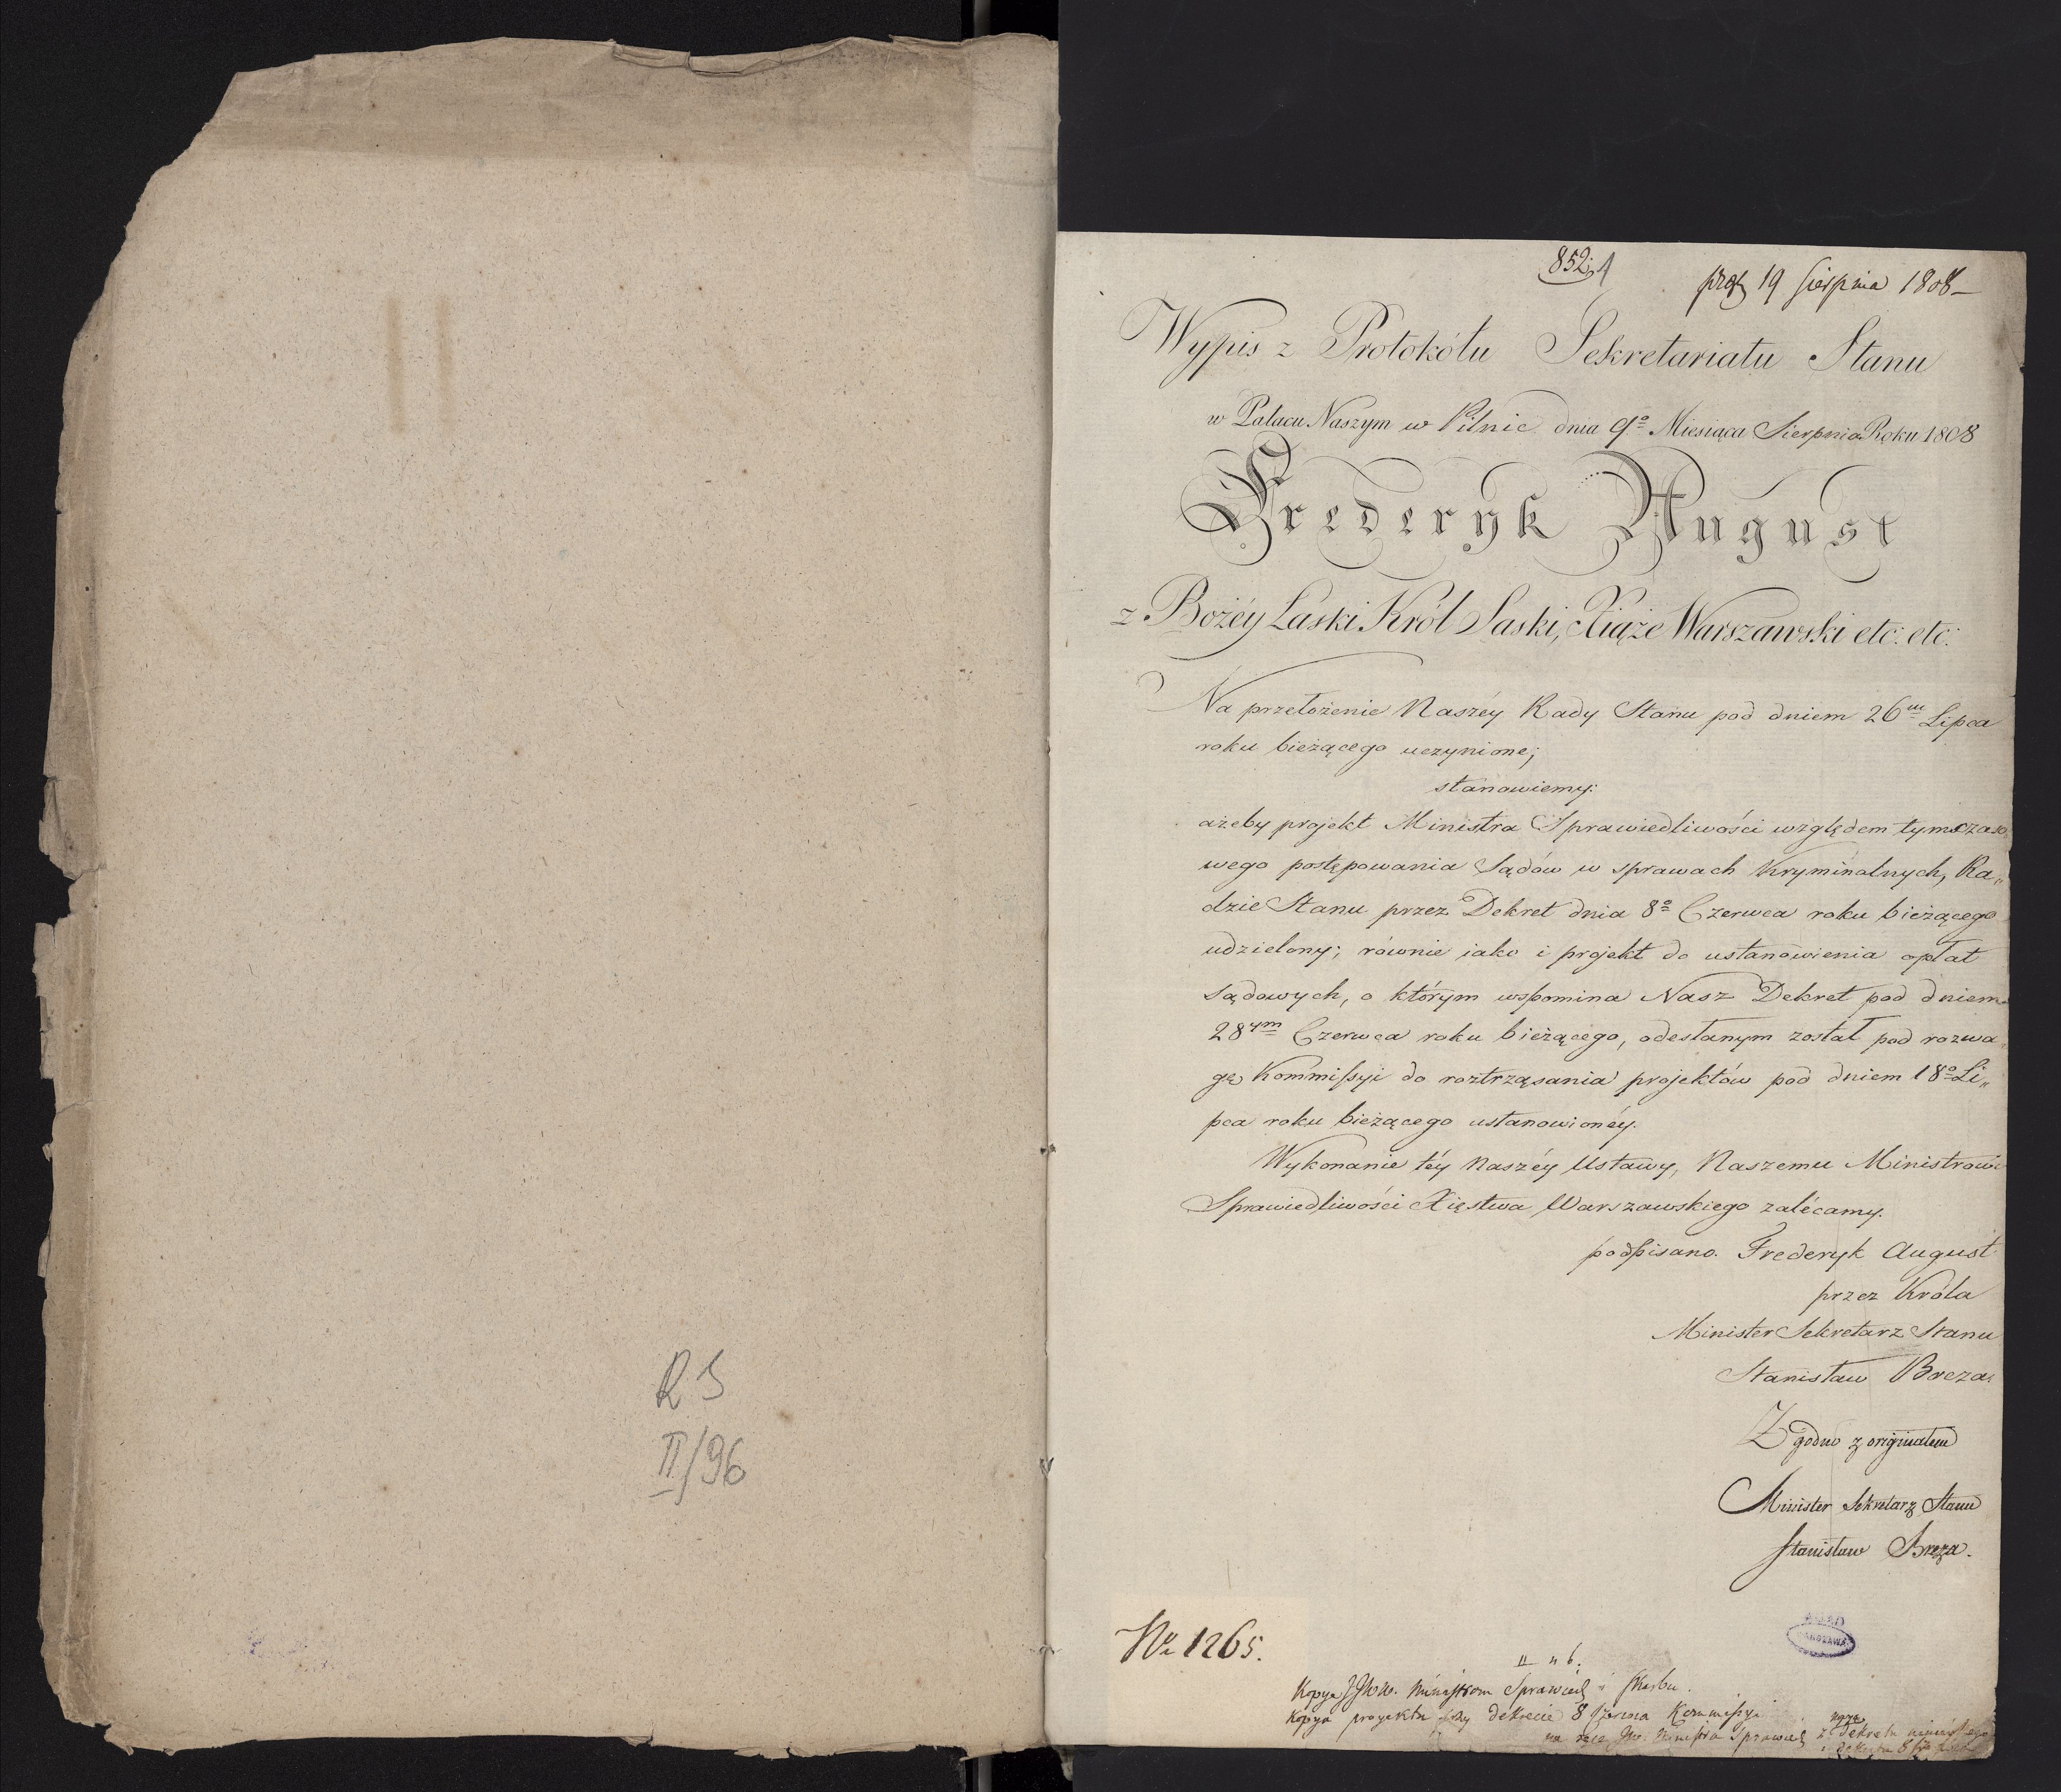 R S
II/96
852. 1
prez 19 Sierpnia 1808
Wypis z Protokółu Sekretariatu Stanu
w Pałacu Naszym w Pilnic dnia 9º Miesiąca Sierpnia Roku 1808
Frederyk August
z Bożéy Łaski Król Saski, Xiąże Warszawski etc: etc:
Na przełożenie Naszéy Rady Stanu pod dniem 26m Lipca
roku bieżącego uczynione;
stanowiemy:
ażeby projekt Ministra Sprawiedliwości względem tymczaso„
wego postępowania Sądów w sprawach Kryminalnych, Ra„
dzie Stanu przez Dekret dnia 8º Czerwca roku bieżącego
udzielony; równie iako i projekt do ustanowienia opłat
sądowych, o którym wspomina Nasz Dekret pod dniem
28ym Czerwca roku bieżącego, odesłanym został pod rozwa„
gę Kommißyi do roztrząsania projektów pod dniem 18º Li„
pca roku bieżącego ustanowionéy.
Wykonanie téy Naszéy Ustawy, Naszemu Ministrowi
Sprawiedliwości Xięstwa Warszawskiego zalécamy.
podpisano. Frederyk August
przez Króla
Minister Sekretarz Stanu
Stanisław Breza.
Zgodno z originałem
Minister Sekretarz Stanu
Stanisław Breza.
AGAD
WARSZAWA
No 1265.
II n 6.
Kopya JJWW. Ministrom Sprawied i Skarbu.
Kopya proyektu przy dekrecie 8 Czerwca Kommißyi
na ręce JW. Ministra Sprawied z kopyą Dekretu niniejszego